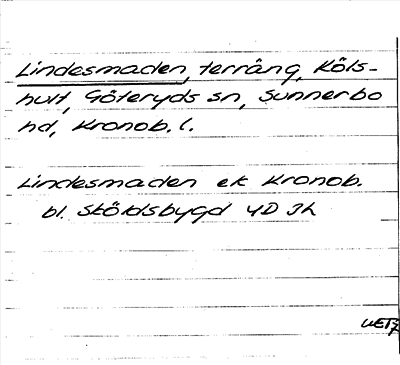 Lindesmaden, terräng,Köls-
hult, Göteryds sn, Sunnerbo
hd, Kronob. l.
Lindesmaden ek Kronob.
bl. Sköldsbygd 4D 3h